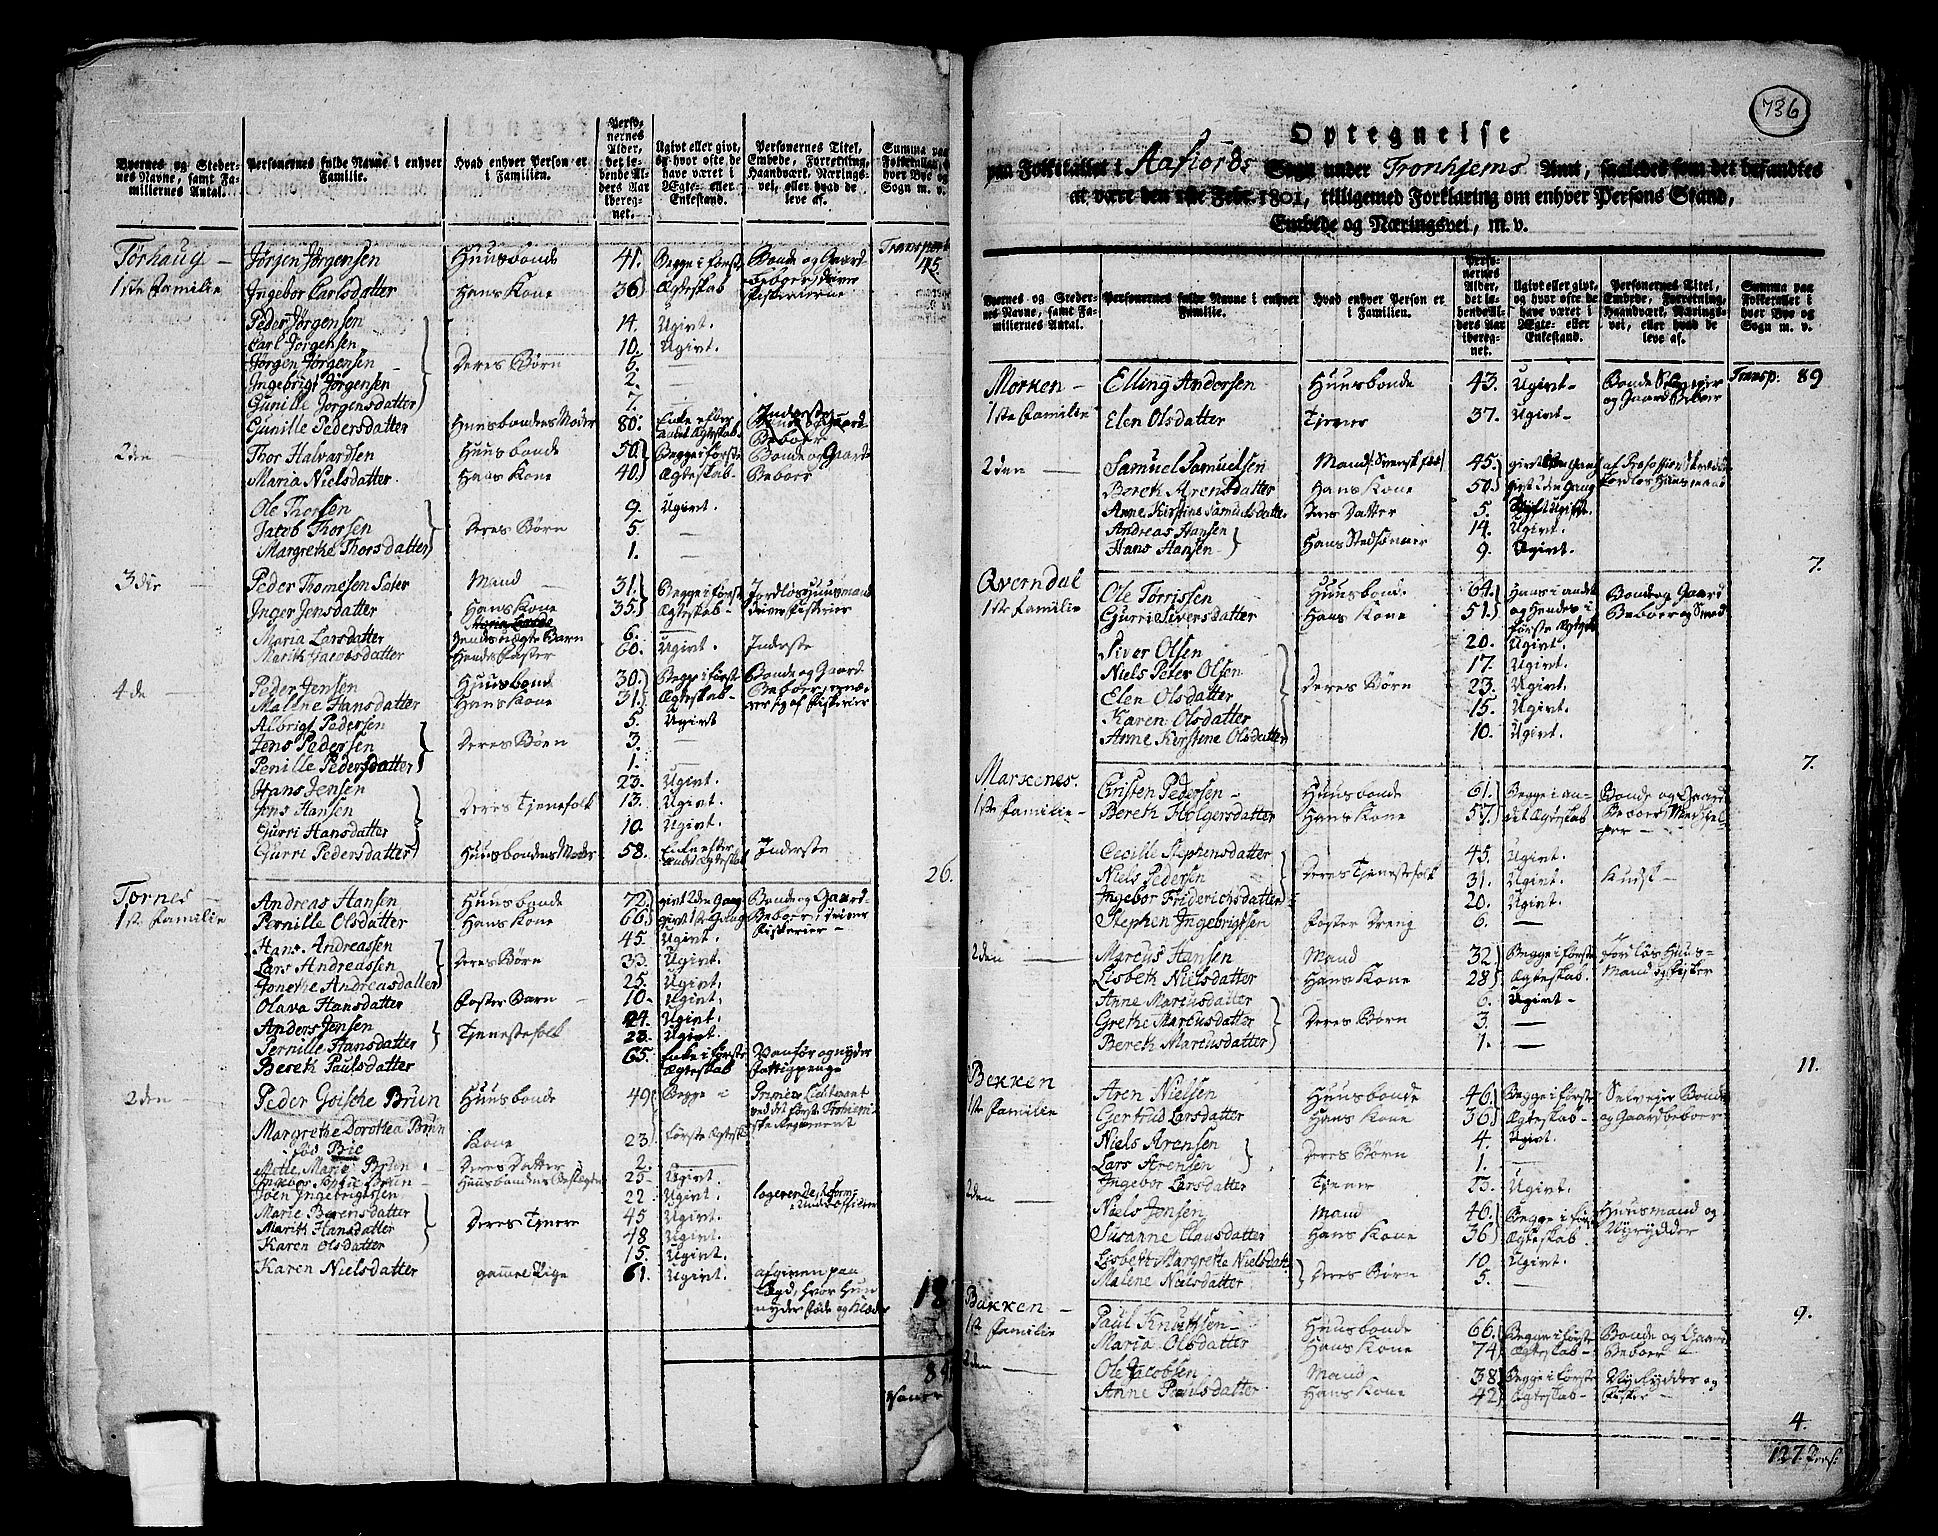 Byernes og Steder-
nes Navne, samt Fa-
miliernes Antal.
Personernes fulde Navne i enhver
Familie.
Hvad enhver Person er
i Familien.
Perso-
nernes
Alder,
det le-
bende Al-
ders Aar
iberegn-
net.
Ugivt eller givt,
og hvor ofte de
have været i
Ægte- eller
Enkestand.
Personernes Titel,
Embede, Forretning,
Haandværk, Nærings-
vei, eller hvad de
leve af.
Summa paa
Folketallet i
hver Bye og
Sogn m. v.
Tørhaug — Jørgen Jørgensen Huusbonde 41. Begge i første Bonde og Gaard Transport
1ste Familie Ingebor Carlsdatter Hans Kone 36 Ægteskab Beboer, driver Fiskerierne 45.
Peder Jørgensen 14. Ugivt.
Carl Jørgensen 10. Ugivt.
Jørgen Jørgensen Deres Børn 5. —
Ingebrigt Jørgensen 2. —
Gunille Jørgensdatter 7.
Gunille Pedersdatter Huusbondens Moder 80. Enke efter andet Ægteskab Inderste
2den — Thor Halvardsen Huusbonde 50 Begge i første Bonde og Gaard
Maria Nielsdatter Hans Kone 40. Ægteskab Beboer
Ole Thorsen 9. Ugivt.
Jacob Thorsen Deres Børn 5. —
Margrethe Thorsdatter 1. —
3die — Peder Thomesen Sæter Mand 31. Begge i første Jordløs Huusmand
Inger Jensdatter Hans Kone 35. Ægteskab driver Fiskerier
Maria Larsdatter Hendes uægte Barn 6. —
Marith Jacobsdatter Hendes Søster 60. Ugivt. Inderste
4de — Peder Jensen Huusbonde 30. Begge i første Bonde og Gaard
Malene Hansdatter Hans Kone 31. Ægteskab Beboer, ernæ-
rer sig af Fiskerier
Albrigt Pedersen 5. Ugivt
Jens Pedersen Deres Børn 3. —
Penille Pedersdatter 1. —
Hans Jensen 23. Ugivt.
Jens Hansen Deres Tjenestfolk 13. Ugivt.
Gurri Hansdatter 10. Ugivt.
Gurri Pedersdatter Huusbondens Moder 58. Enke efter andet Ægteskab Inderste
26.
Tørnes — Andreas Hansen Huusbonde 72 givt 2den Gang Bonde og Gaard-
1ste Familie Pernille Olsdatter Hans Kone 66 givt 1ste Gang Beboer, driver
Fiskerier —
Hans Andreassen 45. Ugivt.
Lars Andreassen Deres Børn 33. Ugivt.
Jonethe Andreasdatter 25. Ugivt.
Olava Hansdatter Foster Barn 10. Ugivt.
Anders Jensen 24. Ugivt.
Pernille Hansdatter Tjenestefolk 23. Ugivt.
Bereth Paulsdatter 65. Enke i første Ægteskab Vanfør og nyder Fattigpenge
2den — Peder Goische Brun Huusbonde 49 Begge i Premier Lieutenant
ved det første Tronhiem-
ske Regiment
Margrethe Dorothea Brun
fød Brie Kone 23 første Ægtesk.
Mette Marie Brun Deres Datter 2. —
Ingebor Brun Huusbondens 25 Ugivt.
Joen Ingebrigtsen 22 Ugivt. logerende
Underofficier
Marie Berensdatter 45 Ugivt.
Marith Hansdatter Deres Tjenere 48 Ugivt.
Karen Olsdatter 15. Ugivt.
Karen Nielsdatter gammel Pige 61. Ugivt. afgiven paa
Lægd, hvor hun
nyder føde og Klæder
18
89
736
Optegnelse
paa Folketallet i Aafiords Sogn under Tronhjems Amt, saaledes som det befandtes
at være den 1ste Febr. 1801, tilligemed Forklaring om enhver Persons Stand,
Embede og Næringsvei, m. v.
Byernes og Steder-
nes Navne, samt Fa-
miliernes Antal.
Personernes fulde Navne i enhver
Familie.
Hvad enhver Person er
i Familien.
Perso-
nernes
Alder,
det le-
bende Al-
ders Aar
iberegn-
net.
Ugivt eller givt,
og hvor ofte de
have været i
Ægte- eller
Enkestand.
Personernes Titel,
Embede, Forretning,
Haandværk, Nærings-
vei, eller hvad de
leve af.
Summa paa
Folketallet i
hver Bye og
Sogn m. v.
Morken — Elling Andersen Huusbonde 43. Ugivt Bonde Selvejer Transp: 89
1ste Familie Elen Olsdatter Tjener 37. Ugivt og Gaard Beboer
2den — Samuel Samuelsen Mand 45. givt 1ste Gang af Profession
Bereth Arensdatter Hans Kone 50. givt 2den Gang Jordløs Huusmand
Anne Kirstine Samuelsdatter Deres Datter 5. Ugivt.
Andreas Hansen 14. Ugivt.
Hans Hansen Hans Stedsønner 9. Ugivt.
7.
Qverndal Ole Torrissen Huusbonde 64. Hans i andet Bonde og Gaard
1ste Familie Gjurri Siversdatter Hans Kone 51. og Hendes i første Ægtesk. Beboer og Smed
Siver Olsen 20. Ugivt.
Niels Peter Olsen 17. Ugivt.
Elen Olsdatter Deres Børn 23. Ugivt.
Karen Olsdatter 15. Ugivt.
Anne Kirstene Olsdatter 10. Ugivt.
7.
Markenes. Cristen Pedersen Huusbonde 61. Begge i an- Bonde og Gaard
1ste Familie Bereth Holgersdatter Hans Kone 57. det Ægteskab Beboer Medhiel-
per —
Cecille Stephensdatter 45. Ugivt.
Niels Pedersen Deres Tjenestefolk 31. Ugivt. Kudsk —
Ingebor Friderichsdatter 20. Ugivt.
Stephen Ingebrigtsen Foster Dreng 6. —
2den — Marcus Hansen Mand 32. Begge i første Jordløs Huus-
Lisbeth Nielsdatter Hans Kone 28 Ægteskab Mand og Fisker
Anne Marcusdatter 6. Ugivt
Grethe Marcusdatter Deres Børn 3. —
Bereth Marcusdatter 1. —
11.
Bekken Aren Nielsen Huusbonde 46 Begge i første Selvejer Bonde
1ste Familie Gertrud Larsdatter Hans Kone 36 Ægteskab og Gaardbeboer
Niels Arensen 4. Ugivt.
Lars Arensen Deres Børn 1. —
Ingebor Larsdatter Tjener 13. Ugivt.
2den — Niels Jensen Mand 46. Begge i første Huusmand og
Susanne Clausdatter Hans Kone 36 Ægteskab Nyrydder
Lisbeth Margrethe Nielsdatt. 10 Ugivt.
Malene Nielsdatter Deres Børn 5. —
9.
Bakken — Paul Knuttsen Huusbonde 66. Begge i første Bonde og Gaard
1ste Familie Maria Olsdatter Hans Kone 74 Ægteskab Beboer
2den — Ole Jacobsen Mand 38 Begge i første Nyrydder og
Anne Paulsdatter Hans Kone 42 Ægteskab Fisker
4.
127. Pers: